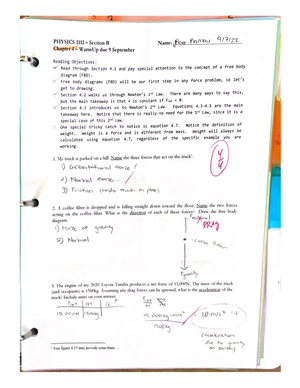 PHYSICS 1111 – Section B
Name: 9/7/22
Chapter 4 – WarmUp due 9 September
Reading Objectives:
Read through Section 4.1 and pay special attention to the concept of a free body
diagram (FBD).
Free body diagrams (FBD) will be our first step in any force problem, so let's
get to drawing.
Section 4.2 walks us through Newton's 1st Law. There are many ways to say this,
but the main takeaway is that v is constant if Fnet = 0.
Section 4.3 introduces us to Newton's 2nd Law. Equations 4.3-4.5 are the main
takeaway here. Notice that there is really no need for the 1st Law, since it is a
special case of this 2nd Law.
One special tricky catch to notice is equation 4.7. Notice the definition of
weight. Weight is a force and is different from mass. Weight will always be
calculated using equation 4.7, regardless of the specific example you are
working.
1. My truck is parked on a hill. Name the three forces that act on the truck¹.
1) Gravitational force
2) Normal force
3) Friction
2. A coffee filter is dropped and is falling straight down toward the floor. Name the two forces
acting on the coffee filter. What is the direction of each of these forces? Draw the free body
diagram.
1) Force of gravity
2) Normal
DRAG
gravity
3. The engine of my 2020 Toyota Tundra produces a net force of 15,000N. The mass of the truck
(and occupants) is 1500kg. Assuming any drag forces can be ignored, what is the acceleration of the
truck? Include units on your answer.
1500kg
(acceleration
due to gravity
on earth)
¹ See figure 4.15 may provide some hints…